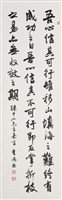 吾心信其可行則移山填海之難終有
成功之日吾心信其不可行則反掌折枝
之易亦無收效之期